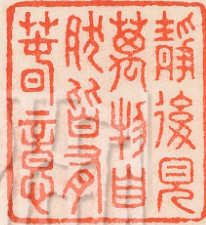 靜後見
萬物自
然皆有
春意